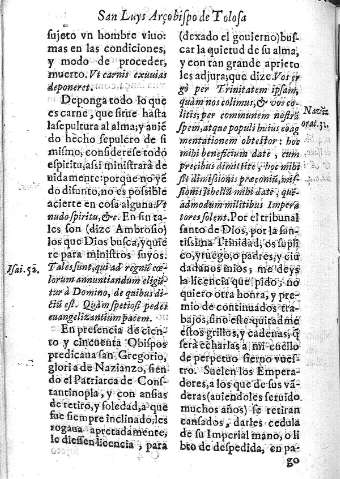 San Luys Arçobispo de Tolosa
sujeto vn hombre viuo:
mas en las condiciones,
y modo de proceder,
muerto. Vt carnis exuuias
deponeret.
Deponga todo lo que
es carne, que sirue hasta
la sepultura al alma; y auiẽ
do hecho sepulcro de si
mismo, considerese todo
espiritu, assi ministrarà de
uidamente: porque no yẽ
do difunto, no es possible
acierte en cosa alguna. Vt
nudo spiritu, &c. En sin ta-
les son (dize Ambrosio)
los que Dios busca, y quie
re para ministros suyos.
Isai. 52.
Tales sunt, qui ad regnũ cæ-
lorum annuntiandum eligũ
tur à Domino, de quibus di
ctũ est. Quàm speciosi pedes
euangelizantium pacem.
En presencia de cien-
to y cincuenta Obispos
predicaua san Gregorio,
gloria de Nazianzo, sien
do el Patriarca de Cons-
tantinopla, y con ansias
de retiro, y soledad, a que
fue siempre inclinado; les
rogaua apretadamente,
le diessen licencia, para
(dexado el gouierno) bus-
car la quietud de su alma,
y con tan grande aprieto
les adjura, que dize. Vos er
gò per Trinitatem ipsam,
quàm nos colimus, & vos co-
litis; per communem nostrã
Naziã.
spem, atque populi huius coag
orat. 32.
mentationem obtestor: hoc
mihi beneficium date, cum
precibus dimittite, hoc mihi
sit dimissionis præconiũ, mis-
sionis libellũ mihi date, que-
admodum militibus Impera
tores solent. Por el tribunal
santo de Dios, por la san-
tissima Trinidad, os supli
co, y ruego, o padres, y ciu
dadanos mios; me deys
la licencia que pido, no
quiero otra honra, y pre-
mio de continuados tra-
bajos, sino este quitadme
estos grillos, y cadenas, q̃
serà echarlas a mi cuello
de perpetuo sieruo vues-
tro. Suelen los Empera-
dores, a los que de sus vã-
deras (auiendoles seruido
muchos años) se retiran
cansados, darles cedula
de su Imperial mano, o li
bro de despedida, en pa-
go